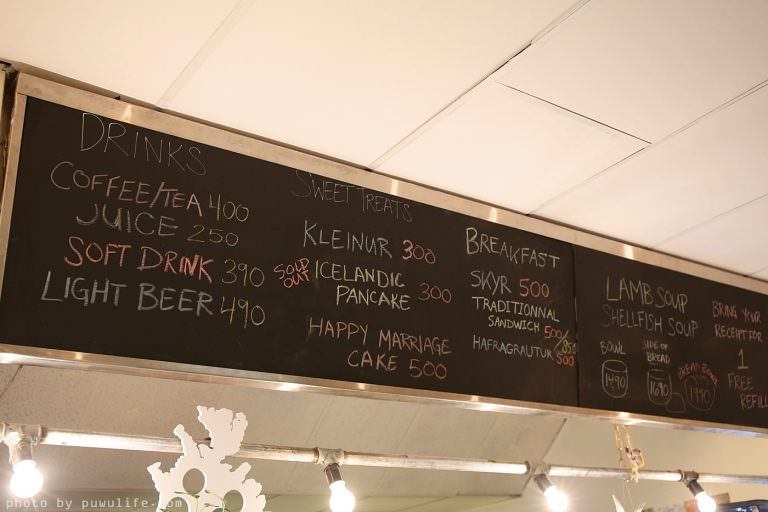 DRINKS
COFFEE/TEA 400
JUICE 250
SOFT DRINK 390
LIGHT BEER 490
SWEET TREATS
KLEINUR 300
SOLD OUT
ICELANDIC
PANCAKE 300
HAPPY MARRIAGE
CAKE 500
BREAKFAST
SKYR 500
TRADITIONNAL
SANDWICH 500/
HAFRAGRAUTUR 500
LAMB SOUP
SHELLFISH SOUP
BOWL
1490
SIDE OF
BREAD
1690
BREAD BOWL
1990
BRING YOUR
RECEIPT FOR
1
FREE
REFILL
photo by puwulife.com